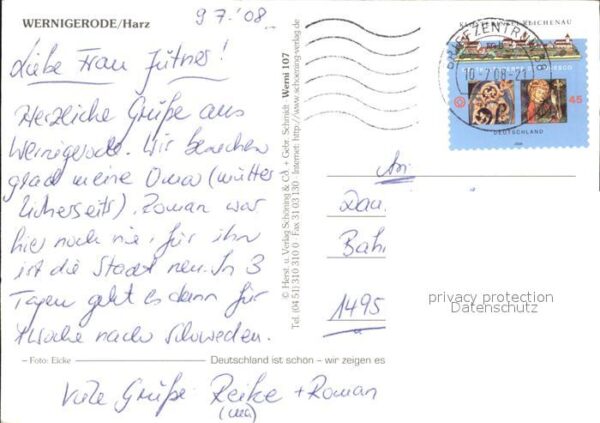 WERNIGERODE/Harz
9.7.'08
Liebe Frau Jütner!
Herzliche Grüße aus
Wernigerode. Wir besuchen
grad meine Oma (mütter
licherseits). Roman war
hier noch nie, für ihn
ist die Stadt neu. In 3
Tagen geht es dann für
1 Woche nach Schweden.
– Foto: Eicke
Deutschland ist schön – wir zeigen es
Viele Grüße Reike + Roman
© Herst. u. Verlag Schöning & Co. + Gebr. Schmidt Werni 107
Tel. (04 51) 310 310 0 · Fax 31 03 130 · Internet: http://www.schoening-verlag.de
BRIEFZENTRUM
10.7.08-21
45
DEUTSCHLAND
An
Bah
1495
privacy protection
Datenschutz